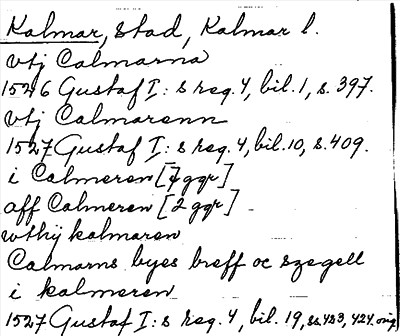 Kalmar, stad, Kalmar l.
vtj Calmarna
1526 Gustaf I:s reg. 4, bil. 1, s. 397.
vtj Calmarenn
1527 Gustaf I:s reg. 4, bil. 10, s. 409.
i Calmeren [7 ggr]
aff Calmeren [2 ggr]
wthij kalmaren
Calmarns byes breff oc szegell
i kalmeren
1527 Gustaf I:s reg. 4, bil. 19, ss 423, 424. orig